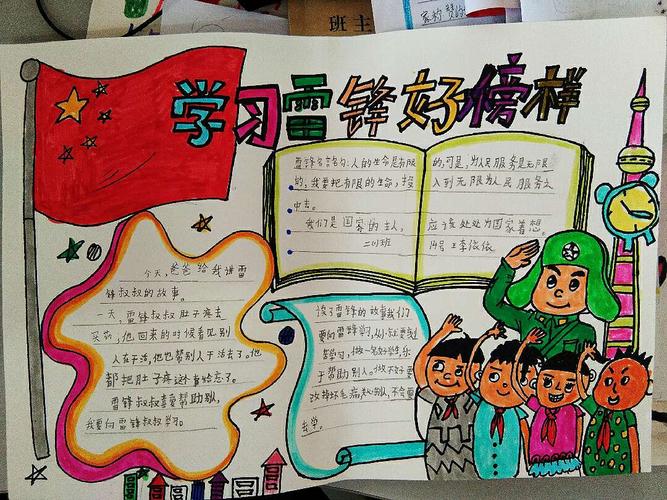 班主
学习雷锋好榜样
雷锋名言名句：人的生命是有限
的，可是，为人民服务是无限
的，我要把有限的生命，投
入到无限为人民服务之
中去。
我们是国家的主人，
应该处处为国家着想。
二(1)班
14号 李依依
今天，爸爸给我讲雷
锋叔叔的故事。
一天，雷锋叔叔肚子疼去
买药，他回来的时候看见别
人在干活，他也帮别人干活去了。他
都把肚子疼这事给忘了。
雷锋叔叔喜爱帮助别人，
我要向雷锋叔叔学习。
读了雷锋的故事我们
要向雷锋学习，从小就要
学习，做一名好学生，乐
于帮助别人。做不好
改掉坏毛病，不
去学。